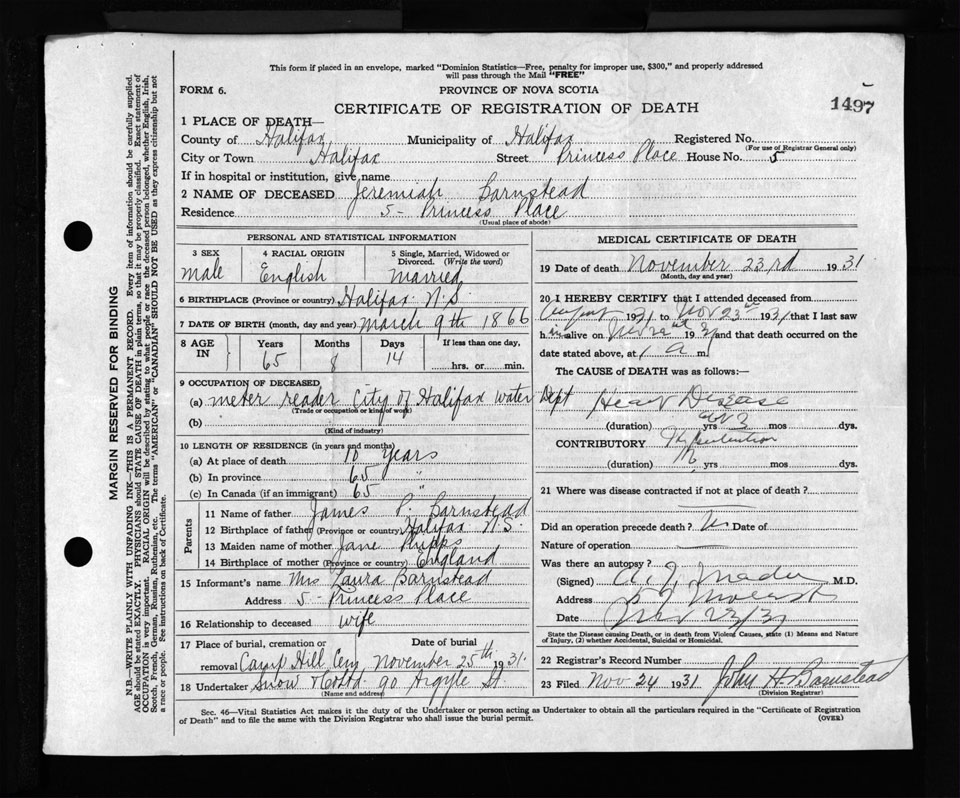 This form if placed in an envelope, marked "Dominion Statistics—Free, penalty for improper use, $300," and properly addressed
will pass through the Mail "FREE"
FORM 6.
PROVINCE OF NOVA SCOTIA
CERTIFICATE OF REGISTRATION OF DEATH
1497
1 PLACE OF DEATH—
County of Halifax Municipality of Halifax Registered No.
(For use of Registrar General only)
City or Town Halifax Street Princess Place House No. 5
If in hospital or institution, give name
2 NAME OF DECEASED Jeremiah Barnstead
Residence 5 - Princess Place
(Usual place of abode)
PERSONAL AND STATISTICAL INFORMATION
3 SEX
male
4 RACIAL ORIGIN
English
5 Single, Married, Widowed or
Divorced. (Write the word)
Married
6 BIRTHPLACE (Province or country) Halifax N.S.
7 DATE OF BIRTH (month, day and year) March 9th 1866
8 AGE
IN
Years
65
Months
8
Days
14
If less than one day,
hrs. or min.
9 OCCUPATION OF DECEASED
(a) meter reader City of Halifax water Dept
(Trade or occupation or kind of work)
(b)
(Kind of industry)
10 LENGTH OF RESIDENCE (in years and months)
(a) At place of death 10 years
(b) In province 65 "
(c) In Canada (if an immigrant) 65 "
Parents
11 Name of father James P. Barnstead
12 Birthplace of father (Province or country) Halifax N.S.
13 Maiden name of mother Jane Phipps
14 Birthplace of mother (Province or country) England
15 Informant's name Mrs Laura Barnstead
Address 5 - Princess Place
16 Relationship to deceased wife
17 Place of burial, cremation or Date of burial
removal Camp Hill Cem November 25th 1931.
18 Undertaker Snow & Co Ltd. 90 Argyle St
(Name and address)
MEDICAL CERTIFICATE OF DEATH
19 Date of death November 23rd 1931
(Month, day and year)
20 I HEREBY CERTIFY that I attended deceased from
1931 to Nov 23rd 1931 that I last saw
him alive on 1931 and that death occurred on the
date stated above, at 1 a m.
The CAUSE of DEATH was as follows:—
Heart Disease
(duration) yrs 3 mos dys.
CONTRIBUTORY
(duration) yrs mos dys.
21 Where was disease contracted if not at place of death?
Did an operation precede death? No Date of
Nature of operation
Was there an autopsy?
(Signed) M.D.
Address
Date Nov 23/31
State the Disease causing Death, or in death from Violent Causes, state (1) Means and Nature
of Injury, (2) whether Accidental, Suicidal or Homicidal.
22 Registrar's Record Number
23 Filed Nov 24 1931 John H. Barnstead
(Division Registrar)
Sec. 46—Vital Statistics Act makes it the duty of the Undertaker or person acting as Undertaker to obtain all the particulars required in the "Certificate of Registration
of Death" and to file the same with the Division Registrar who shall issue the burial permit.
(OVER)
MARGIN RESERVED FOR BINDING
N.B.—WRITE PLAINLY WITH UNFADING INK—THIS IS A PERMANENT RECORD. Every item of information should be carefully supplied.
AGE should be stated EXACTLY. PHYSICIANS should STATE CAUSE OF DEATH in plain terms, so that it may be properly classified. Exact statement of
OCCUPATION is very important. RACIAL ORIGIN will be described by stating to what people or race the deceased person belonged, whether English, Irish,
Scotch, French, German, Russian, Ruthenian, etc. The terms "AMERICAN" or "CANADIAN" SHOULD NOT BE USED as they express citizenship but not
a race or people. See instructions on back of Certificate.